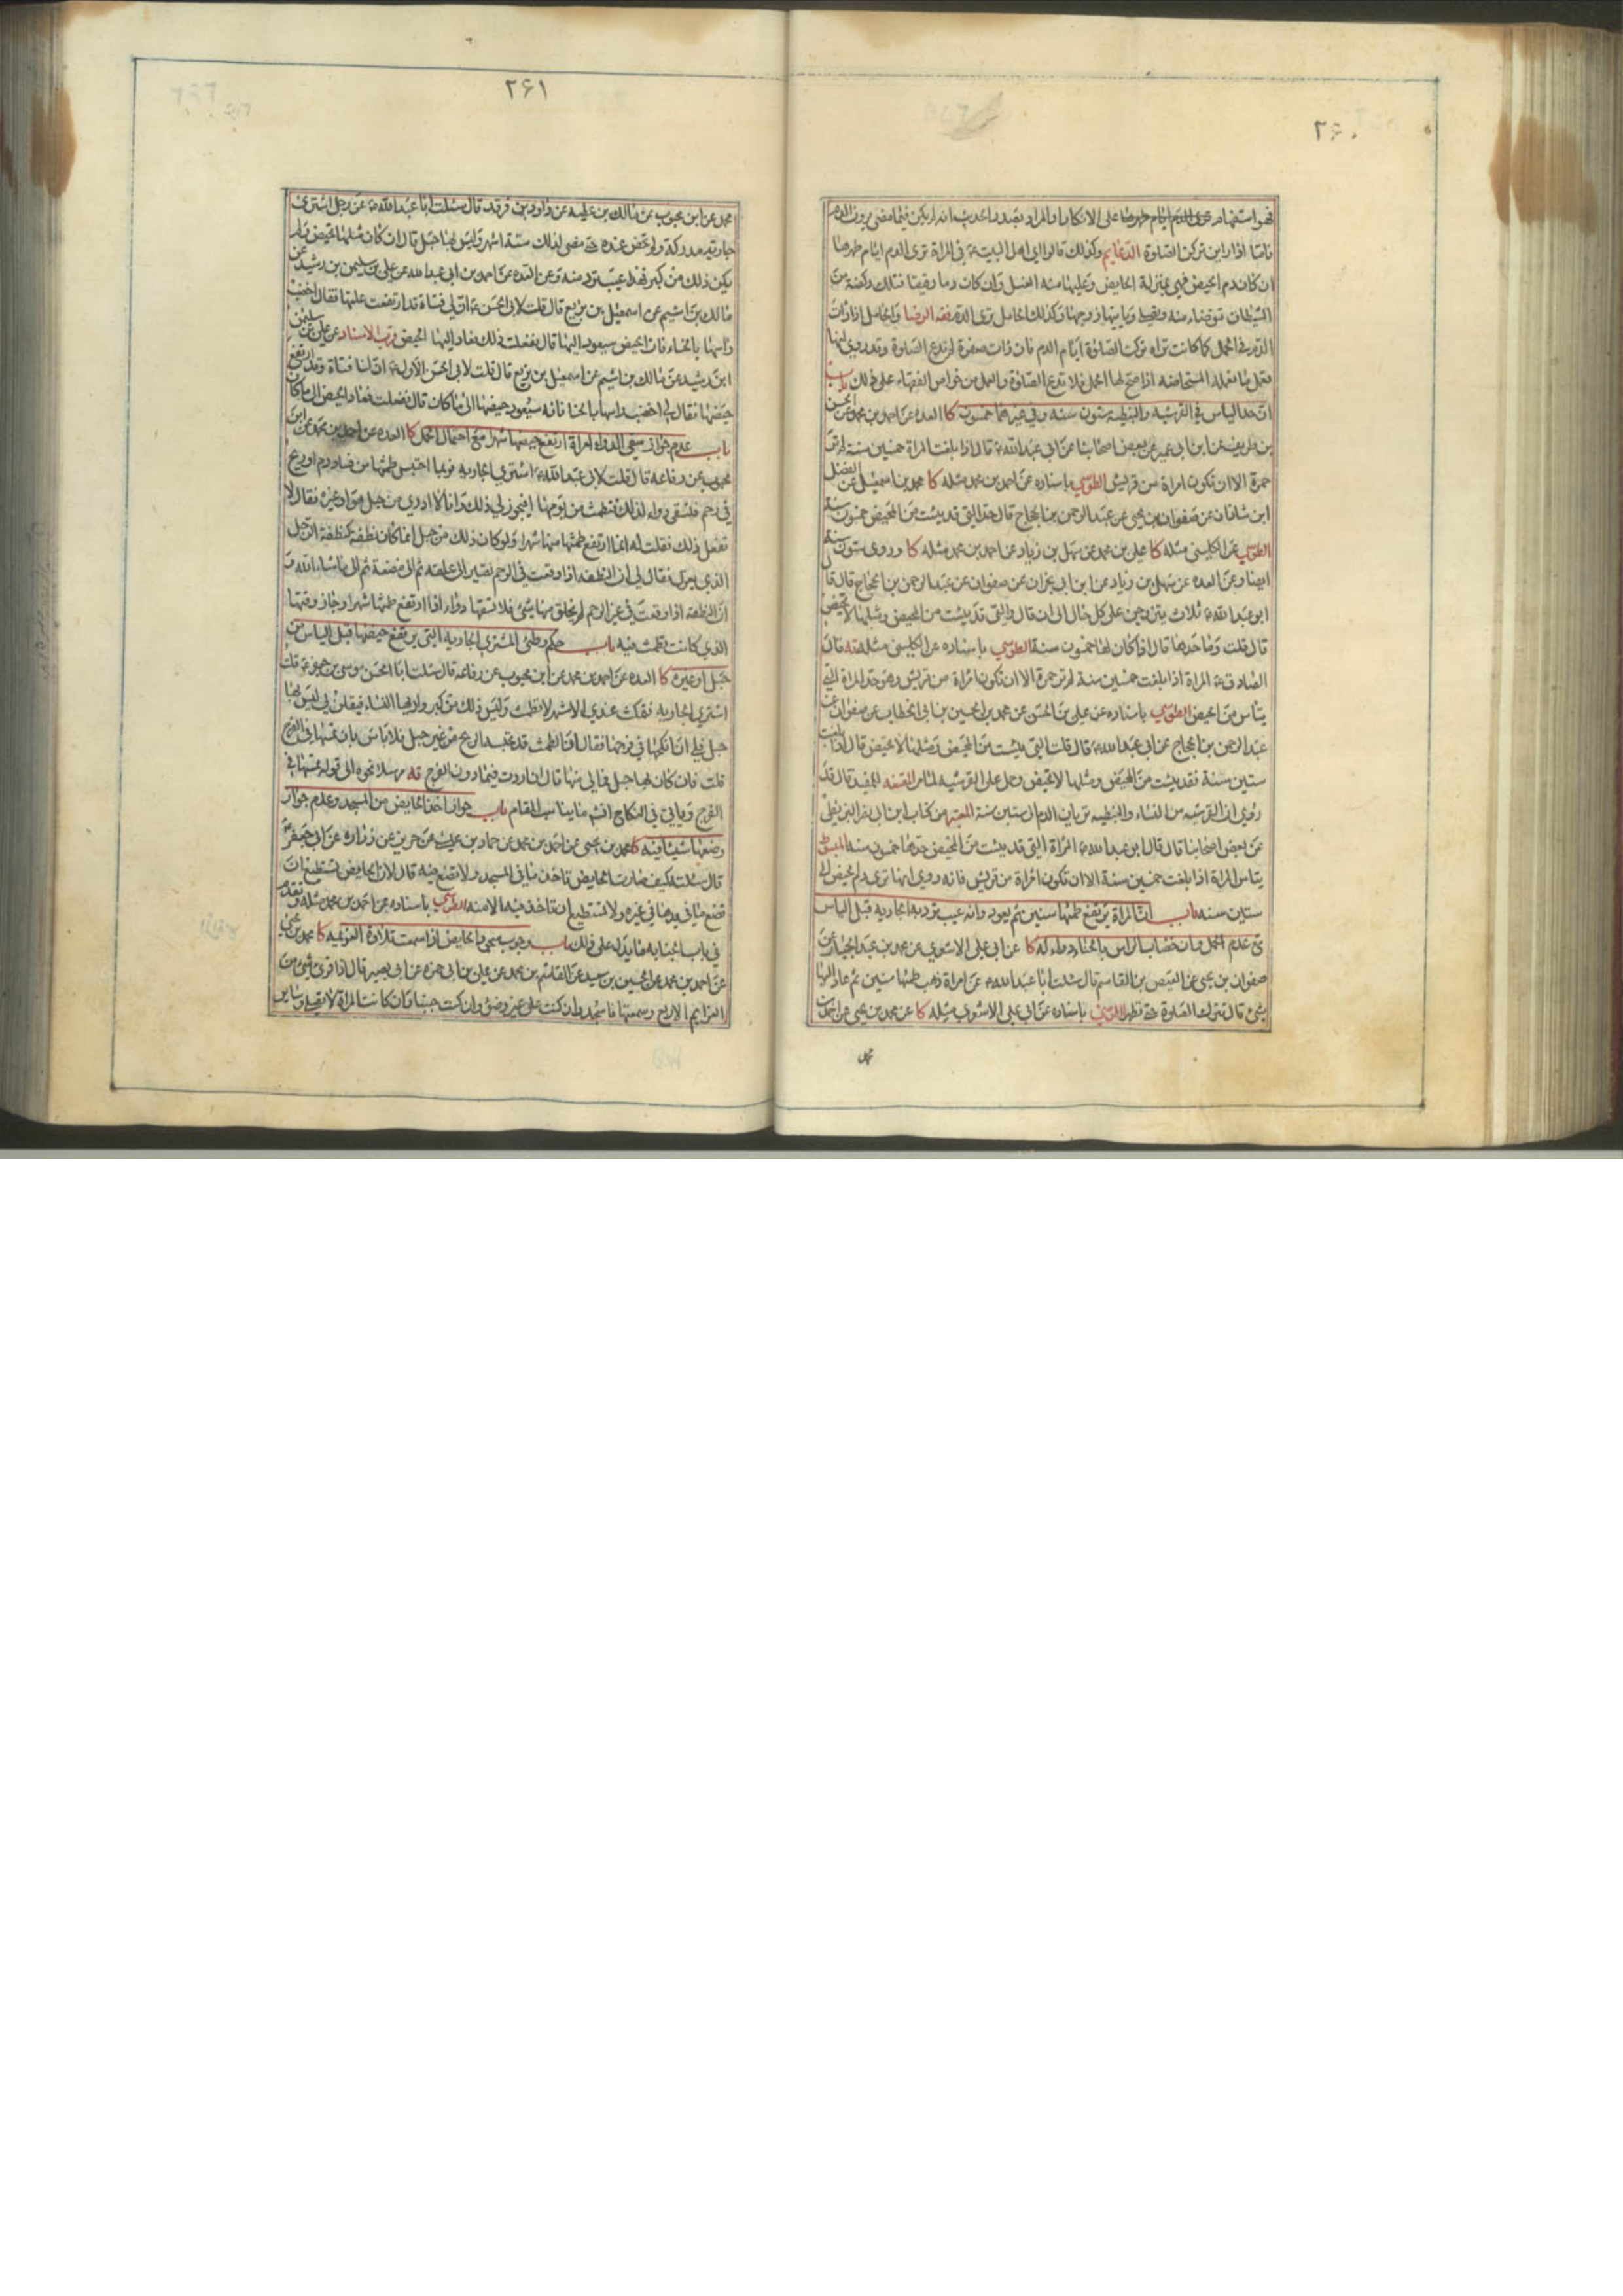 ۲۶۰
فهو استفهام عن الدم ايام طهرها على الانكار
الدعايم وكذلك قالوا اى اهل البيت ع فى المراة ترى الدم ايام طهرها
ان كان دم الحيض فهى بمنزلة الحايض وعليها منه الغسل وان كان دما رقيقا فتلك ركضة من
الشيطان تتوضاء منه وتصلى وياتيها زوجها وكذلك الحامل ترى الدم فقه الرضا والحامل اذا رات
الدم فى الحمل كما كانت تراه تركت الصلوة ايام الدم فان رات صفرة لم تدع الصلوة وقد روى انها
تعمل ما تعمله المستحاضه اذا صح لها الحمل فلا تدع الصلوة والعمل من خواص الفقهاء على ذلك باب
ان حد الياس فى القرشيه والنبطيه ستون سنه وفى غيرهما خمسون كا العده عن احمد بن محمد عن الحسن
بن ظريف عن ابن ابى عمير عن بعض اصحابنا عن ابى عبد الله ع قال اذا بلغت المراة خمسين سنة لم تر
حمرة الا ان تكون امراة من قريش الطوسي باسناده عن احمد بن محمد مثله كا محمد بن اسمعيل عن الفضل
ابن شاذان عن صفوان بن يحيى عن عبد الرحمن بن الحجاج قال حد التى قد يئست من المحيض خمسون سنة
الطوسي عن الكلينى مثله كا على بن محمد عن سهل بن زياد عن احمد بن محمد مثله كا وروى ستون سنة
ايضا وعن العده عن سهل بن زياد عن ابن ابى نجران عن صفوان عن عبد الرحمن بن الحجاج قال قال
ابو عبد الله ع ثلاث يتزوجن على كل حال الى ان قال والتى قد يئست من المحيض ومثلها لا تحيض
قال قلت وما حدها قال اذا كان لها خمسون سنة الطوسي باسناده عن الكلينى مثله فه قال
الصادق ع المراة اذا بلغت خمسين سنة لم تر حمرة الا ان تكون امراة من قريش وهو حد المراة التى
تياس من الحيض الطوسي باسناده عن على بن الحسن عن محمد بن الحسين بن ابى الخطاب عن صفوان عن
عبد الرحمن بن الحجاج عن ابى عبد الله ع قال قلت التى يئست من المحيض ومثلها لا تحيض قال اذا بلغت
ستين سنة فقد يئست من المحيض ومثلها لا تحيض وحمل على القرشيه لما مر المقنعه المفيد قال قد
روى ان القرشيه من النساء والنبطيه تريان الدم الى ستين سنة المعتبر من كتاب ابن ابى نصر البزنطى
عن بعض اصحابنا قال قال ابو عبد الله ع المراة التى قد يئست من المحيض حدها خمسون سنه المبسوط
تياس المراة اذا بلغت خمسين سنة الا ان تكون امراة من قريش فانه روى انها ترى دم الحيض الى
ستين سنه باب ان المراة يرتفع طمثها سنين ثم يعود وانه عيب ترد به الجاريه قبل الياس
مع عدم الحمل وان خضاب الراس بالحناء دواء له كا عن ابى على الاشعرى عن محمد بن عبد الجبار عن
صفوان بن يحيى عن العيص بن القاسم قال سئلت ابا عبد الله ع عن امراة ذهب طمثها سنين ثم عاد اليها
شئ قال تترك الصلوة حتى تطهر الطوسي باسناده عن ابى على الاشعرى مثله كا عن محمد بن يحيى عن احمد بن
محمد
۲۶۱
محمد عن ابن محبوب عن مالك بن عطيه عن داود بن فرقد قال سئلت ابا عبد الله ع عن رجل اشترى
جارية مدركة ولم تحض عنده حتى مضى لذلك ستة اشهر وليس بها حبل قال ان كان مثلها تحيض ولم
يكن ذلك من كبر فهذا عيب ترد منه وعن العده عن احمد بن ابى عبد الله عن على بن سليمن بن رشيد عن
مالك بن اشيم عن اسمعيل بن بزيع قال قلت لابى الحسن ع ان لى فتاة قد ارتفعت علتها فقال اخضب
راسها بالحناء فان الحيض سيعود اليها قال ففعلت ذلك فعاد اليها الحيض قرب الاسناد عن على بن سليمن
ابن رشيد عن مالك بن اشيم عن اسمعيل بن بزيع قال قلت لابى الحسن الاول ع ان لنا فتاة وقد ارتفع
حيضها فقال لى اخضب راسها بالحنا فانه سيعود حيضها الى ما كان قال ففعلت فعاد الحيض الى ما كان
باب عدم جواز سقى الدواء امراة ارتفع حيضها شهرا مع احتمال الحمل كا العده عن احمد بن محمد عن ابن
محبوب عن رفاعه قال قلت لابى عبد الله ع اشترى الجاريه فربما احتبس طمثها من فساد دم او ريح
فى رحم فتسقى دواء لذلك فتطمث من يومها افيجوز لى ذلك وانا لا ادرى من حبل هو او غيره فقال لا
تفعل ذلك فقلت له انما ارتفع طمثها منها شهرا ولو كان ذلك من حبل انما كان نطفه كنطفة الرجل
الذى يعزل فقال لى ان النطفه اذا وقعت فى الرحم تصير الى علقه ثم الى مضغة ثم الى ما شاء الله و
ان النطفه اذا وقعت فى غير الرحم لم يخلق منها شئ فلا تسقها دواء اذا ارتفع طمثها شهرا وجاز وقتها
الذى كانت تطمث فيه باب حكم وطئ المشترى الجاريه التى يرتفع حيضها قبل الياس من
حبل او غيره كا العده عن احمد بن محمد عن ابن محبوب عن رفاعه قال سئلت ابا الحسن موسى بن جعفر ع قلت
اشترى الجاريه فتمكث عندى الاشهر لا تطمث وليس ذلك من كبر واريها النساء فيقلن لى ليس بها
حبل فلى ان انكحها فى فرجها فقال ان الطمث قد تحبسه الريح من غير حبل فلا باس بان تمسها فى الفرج
قلت فان كان لها حبل فما لى منها قال ان اردت فيما دون الفرج فه مرسلا نحوه الى قوله تمسها فى
الفرج وياتى فى النكاح انش ما يناسب المقام باب جواز اخذ الحايض من المسجد وعدم جواز
وضعها شيئا فيه كا محمد بن يحيى عن احمد بن محمد عن حماد بن عيسى عن حريز عن زراره عن ابى جعفر ع
قال سئلته كيف صارت الحايض تاخذ ما فى المسجد ولا تضع فيه قال لان الحايض تستطيع ان
تضع ما فى يدها فى غيره ولا تستطيع ان تاخذ ما فيه الا منه الطوسي باسناده عن احمد بن محمد مثله وتقدم
فى باب الجنابه ما يدل على ذلك باب وجوب سجود الحايض اذا سمعت تلاوة العزيمه كا محمد بن يحيى
عن احمد بن محمد عن الحسين بن سعيد عن القاسم بن محمد عن على بن ابى حمزه عن ابى بصير قال اذا قرئ شئ من
العزايم الاربع وسمعتها فاسجد وان كنت على غير وضوء وان كنت جنبا وان كانت المراة لا تصلى وساير